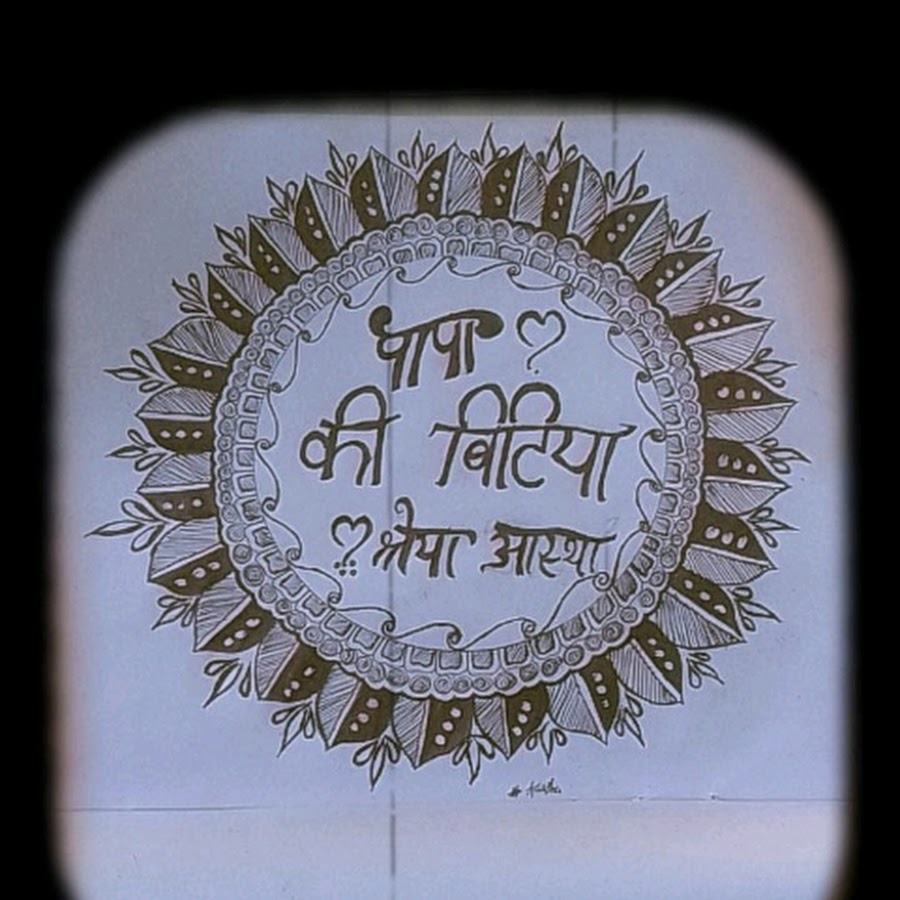 पापा
की बिटिया
श्रेया आस्था